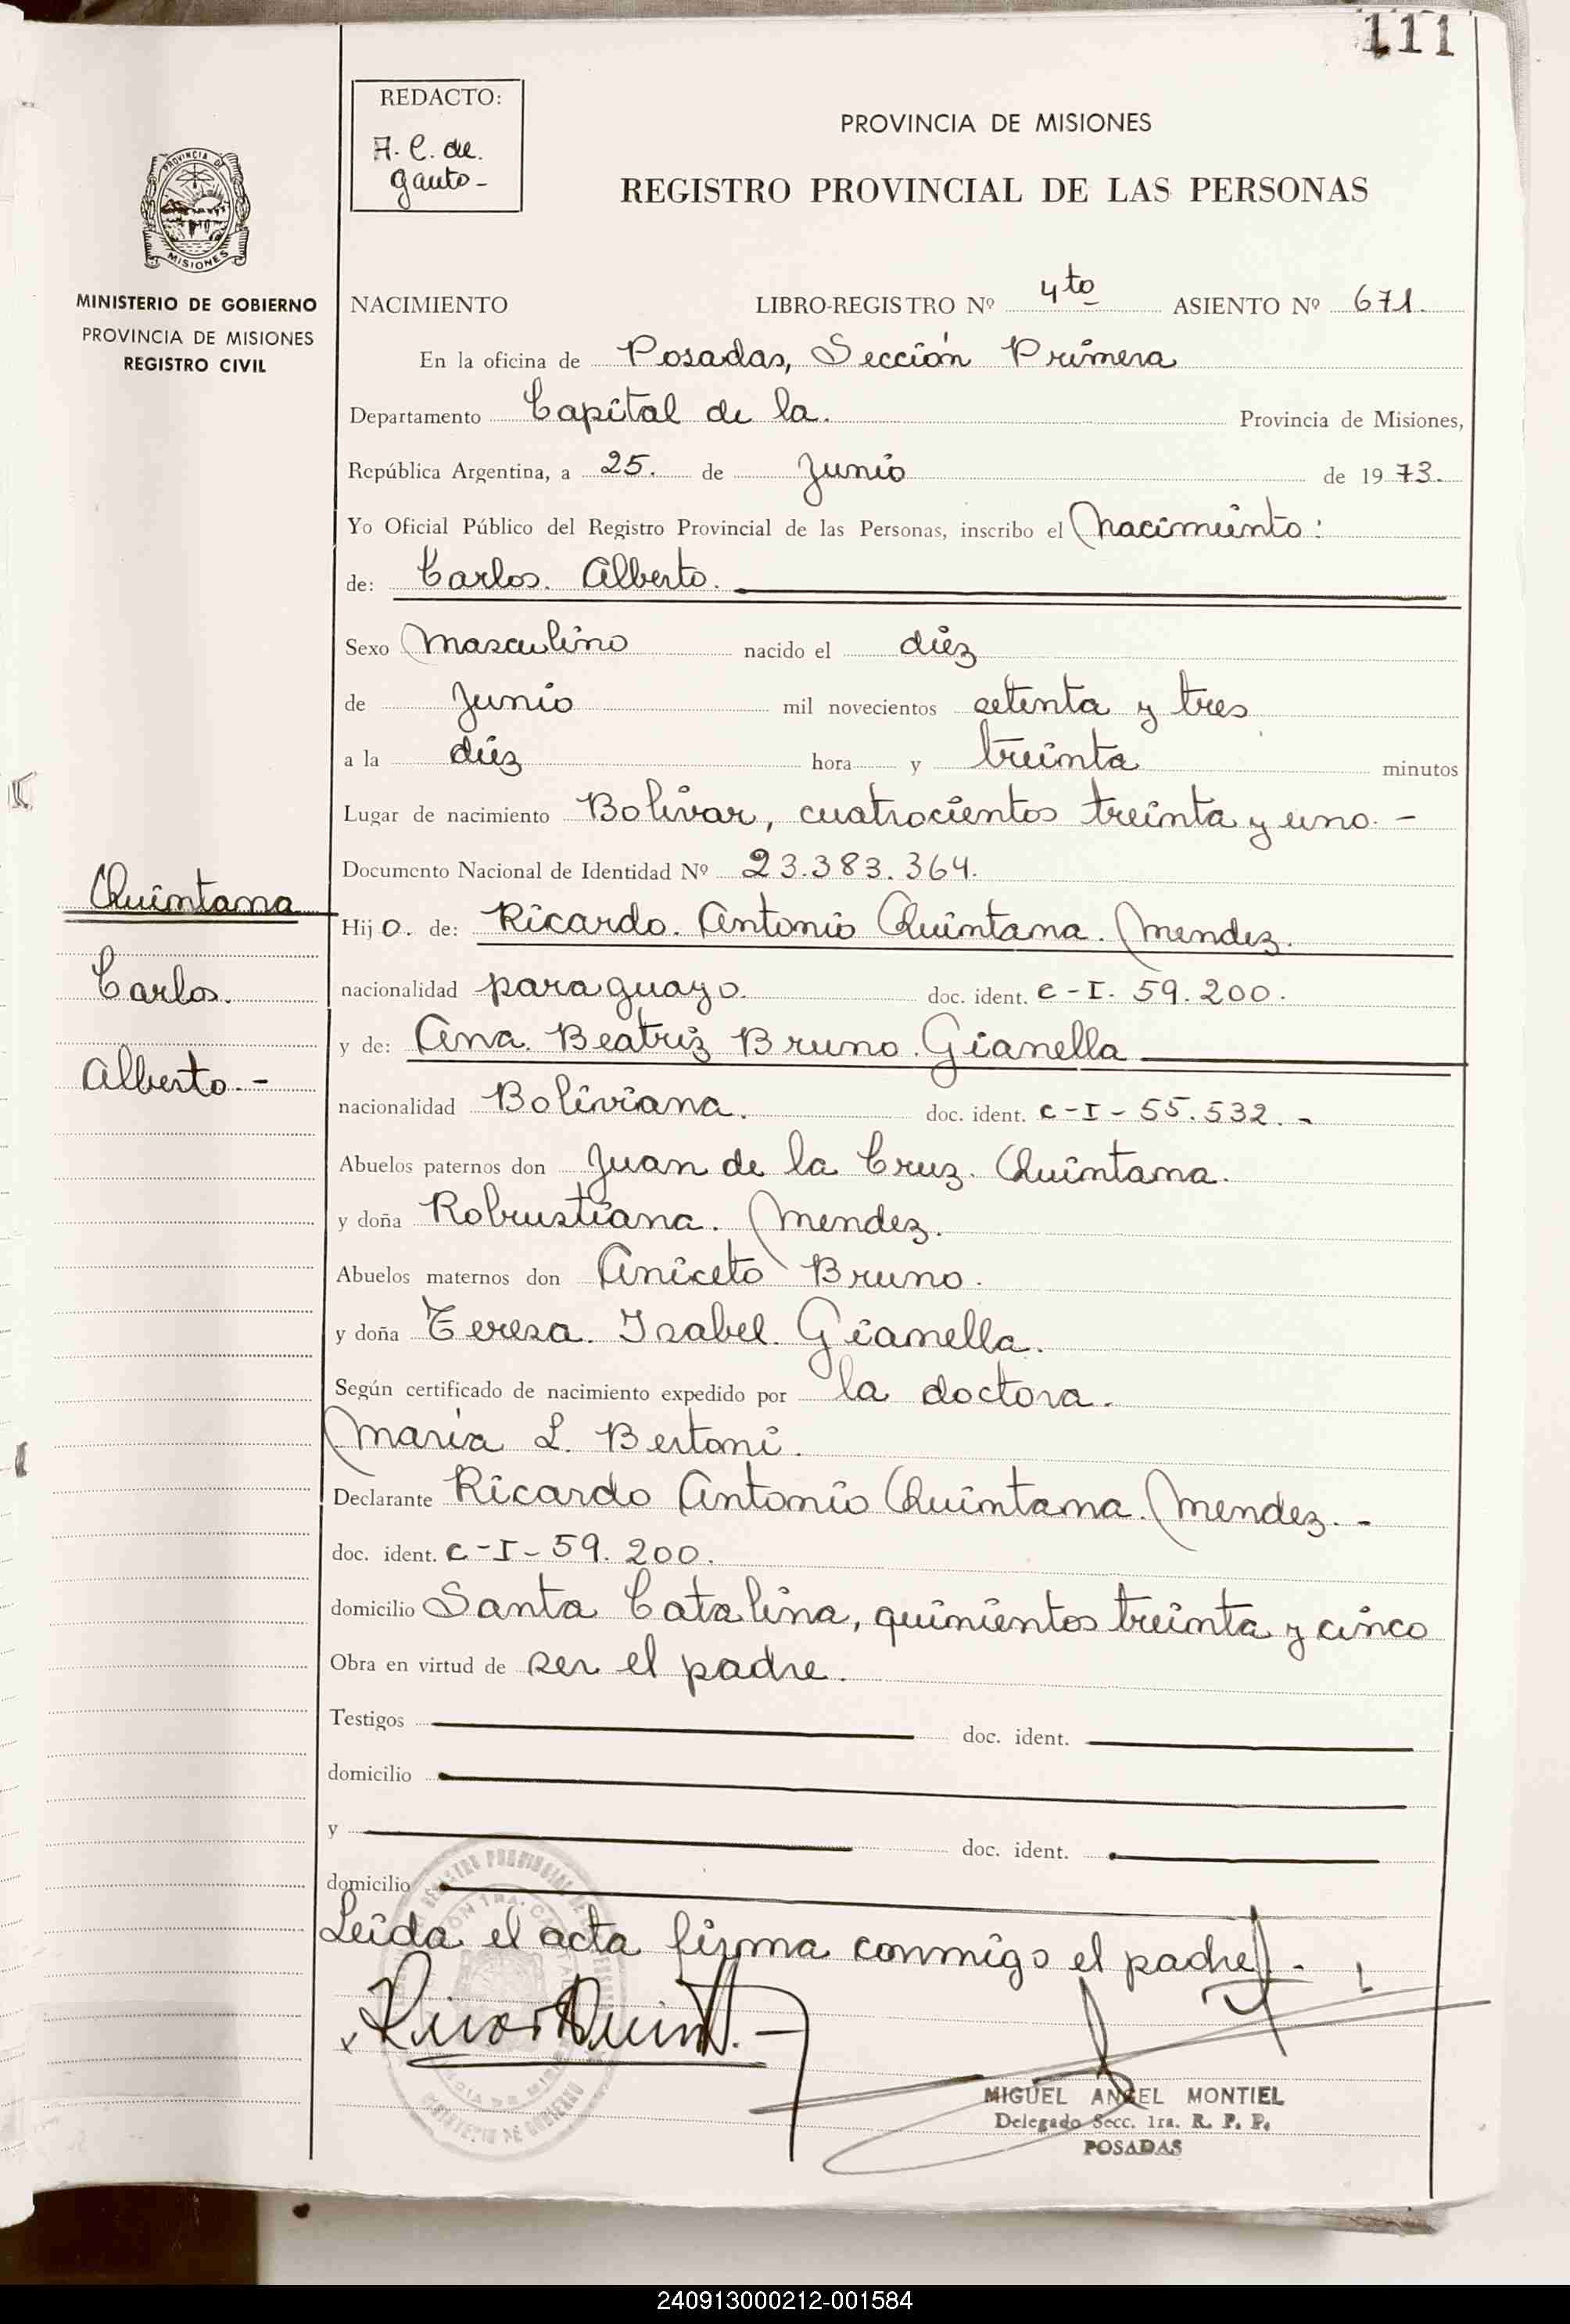 111
REDACTO:
A. C. de.
Gauto-
PROVINCIA DE MISIONES
REGISTRO PROVINCIAL DE LAS PERSONAS
PROVINCIA DE
MISIONES
MINISTERIO DE GOBIERNO
PROVINCIA DE MISIONES
REGISTRO CIVIL
NACIMIENTO LIBRO-REGISTRO Nº 4to ASIENTO Nº 671.
En la oficina de Posadas, Sección Primera
Departamento Capital de la. Provincia de Misiones,
República Argentina, a 25. de Junio de 1973.
Yo Oficial Público del Registro Provincial de las Personas, inscribo el Nacimiento:
de: Carlos. Alberto.
Sexo Masculino nacido el diez
de Junio mil novecientos setenta y tres
a la diez hora y treinta minutos
Lugar de nacimiento Bolivar, cuatrocientos treinta y uno. -
Documento Nacional de Identidad Nº 23.383.364.
Quintana
Carlos.
Alberto.-
Hijo. de: Ricardo. Antonio Quintana. Mendez.
nacionalidad paraguayo. doc. ident. C-I. 59.200.
y de: Ana. Beatriz Bruno. Gianella
nacionalidad Boliviana. doc. ident. C-I-55.532. -
Abuelos paternos don Juan de la Cruz. Quintana.
y doña Robustiana. Mendez.
Abuelos maternos don Aniceto Bruno.
y doña Teresa. Isabel. Gianella.
Según certificado de nacimiento expedido por la doctora.
María L. Bertoni.
Declarante Ricardo Antonio Quintana. Mendez. -
doc. ident. C-I-59.200.
domicilio Santa Catalina, quinientos treinta y cinco
Obra en virtud de ser el padre.
Testigos doc. ident.
domicilio
y doc. ident.
domicilio
Leida el acta firma conmigo el padre. -
MIGUEL ANGEL MONTIEL
Delegado Secc. 1ra. R. P. P.
POSADAS
240913000212-001584